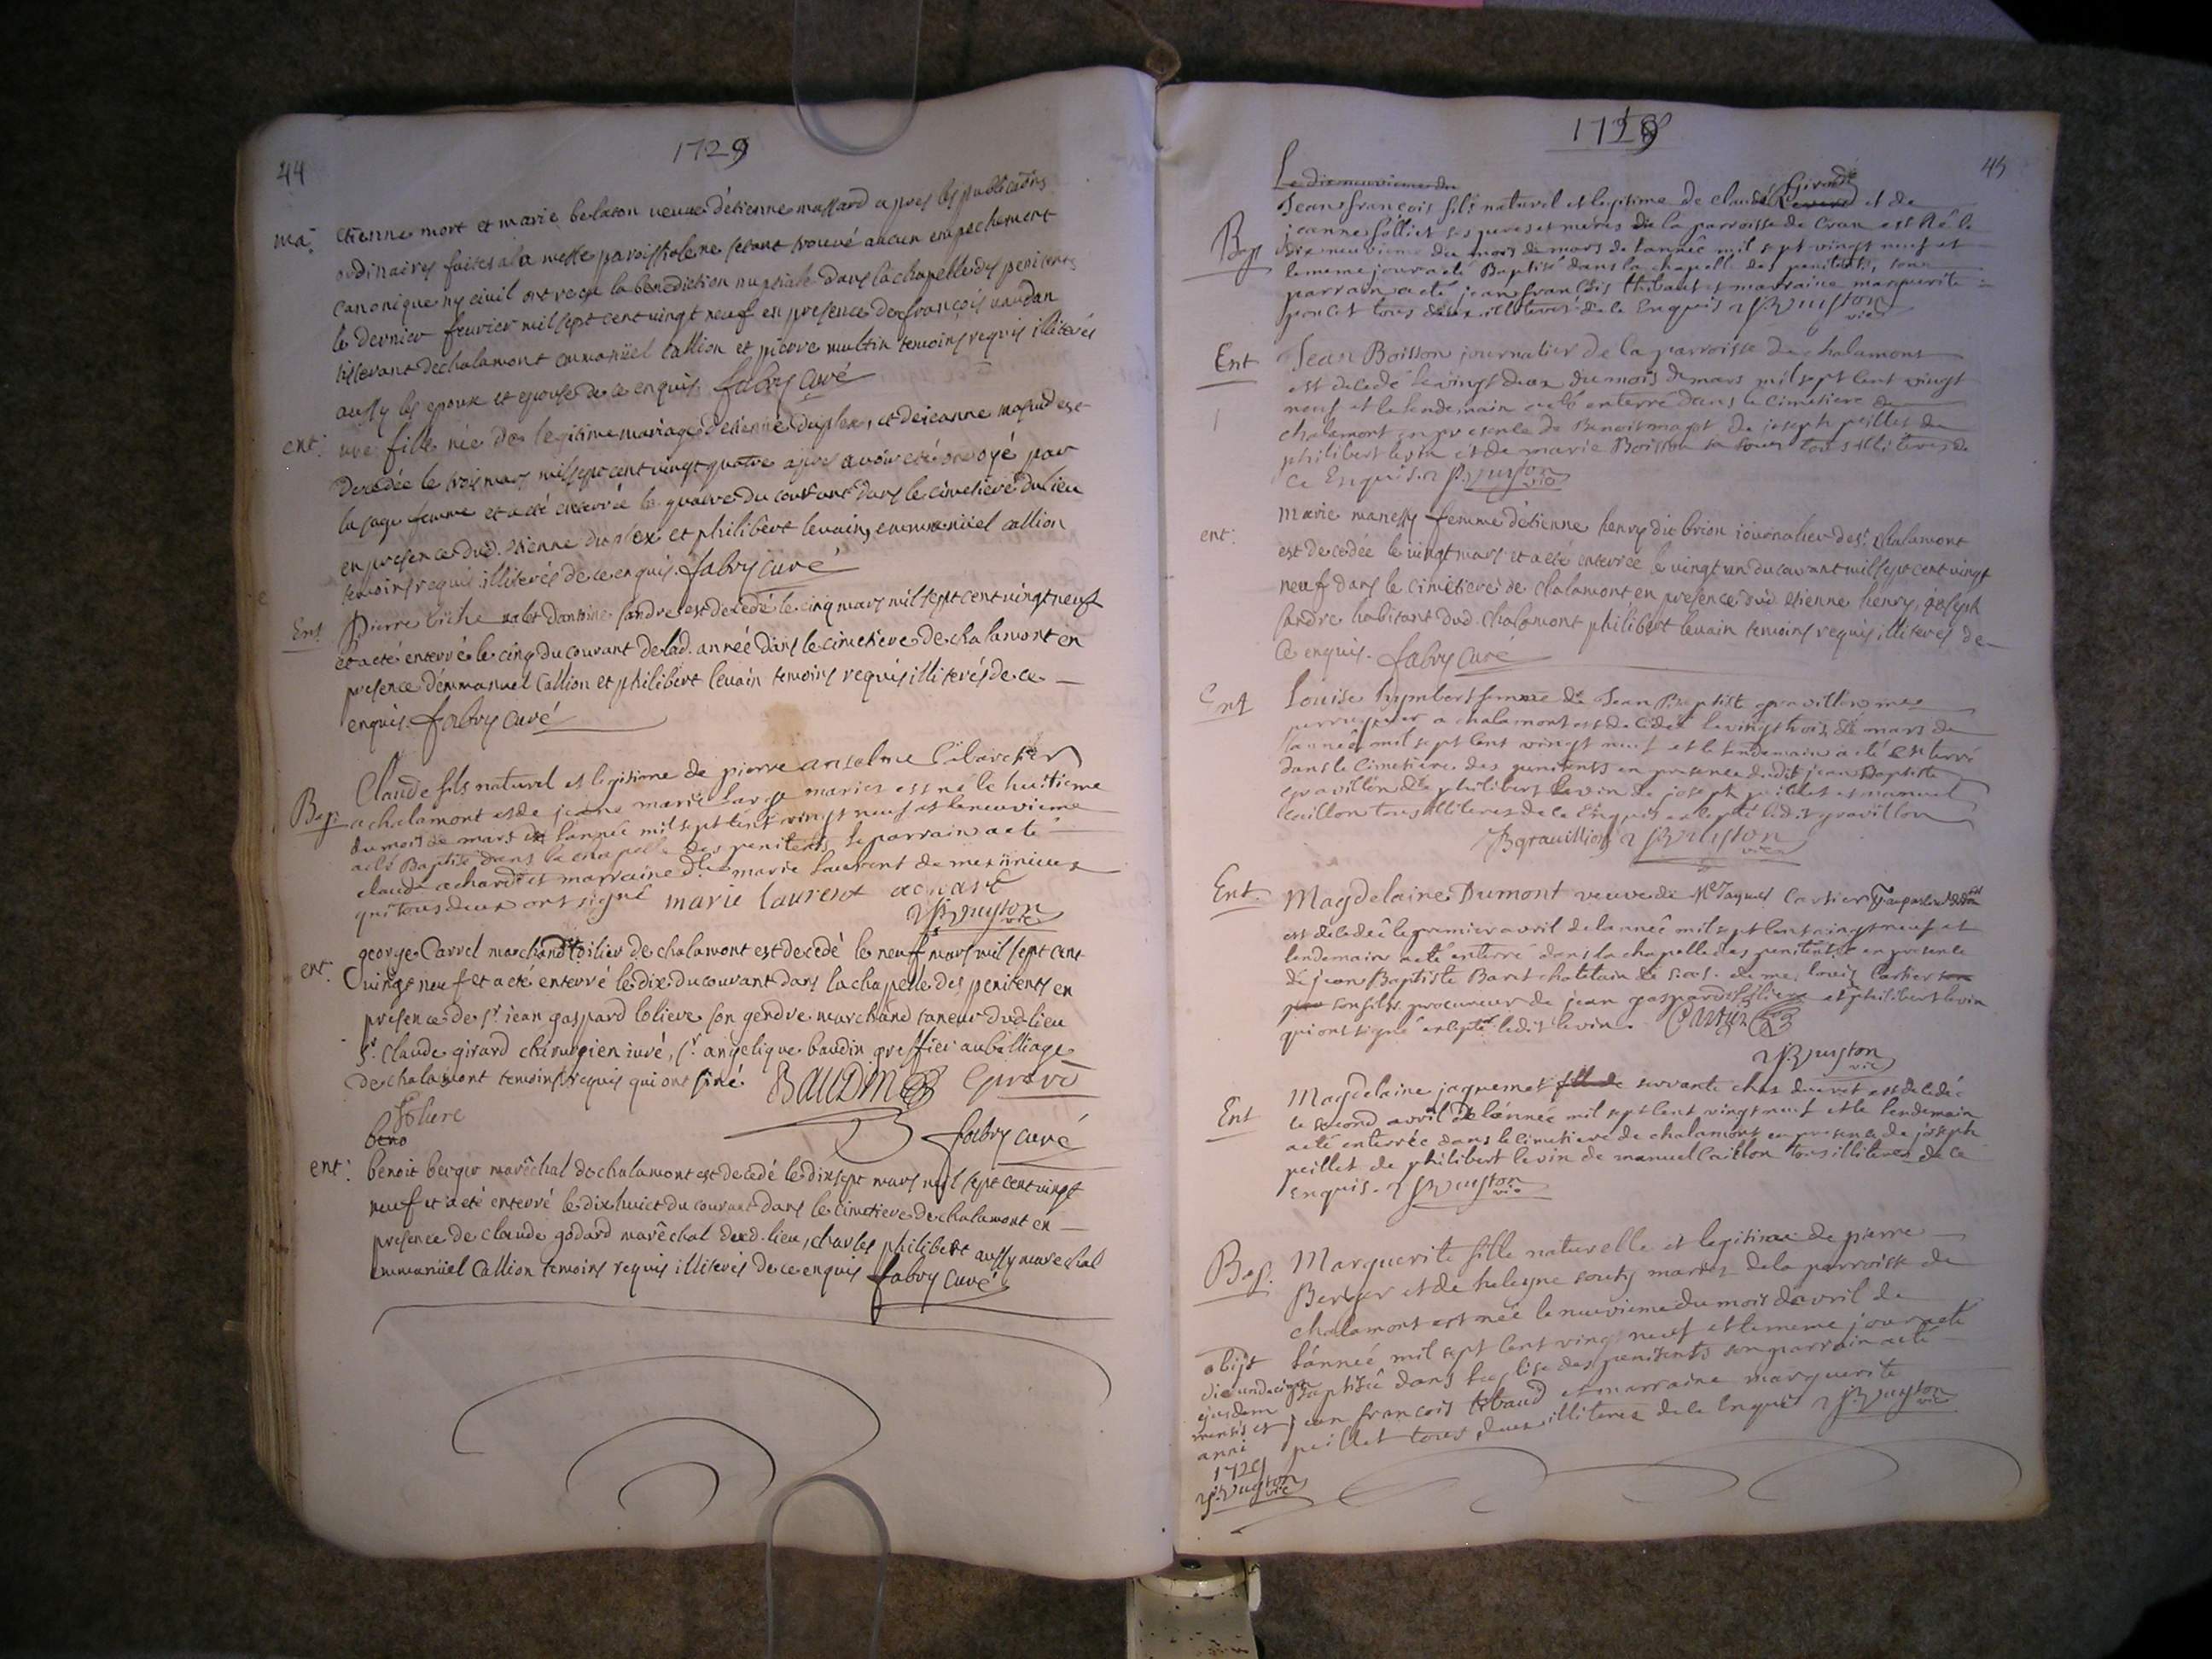 44
1729
ma.
etienne mort et marie belaton veuve d'etienne massard apres les publications
ordinaires faites a la messe paroissiale ne setant trouvé aucun empechement
canonique ny civil ont recu la benediction nuptiale dans la chapelle des penitents
le dernier feurier mil sept cent vingt neuf en presence de françois vaudan
tisserant de chalamont emmanüel Callion et pierre temoins requis illiterés
aussy les epoux et epouse de ce enquis. fabry curé
ent:
une fille née de legitime mariage d'etienne duplex, et de jeanne est
decedée le trois mars mil sept cent vingt quatre apres avoir eté ondoyé par
la sage femme et a eté enterrée le quatre du courant dans le cimetiere du lieu
en presence dud. etienne duplex et philibert levain, emmanüel callion
temoins requis illiterés de ce enquis. fabry curé
Ent
pierre biche valet d'antoine sandre est decedé le cinq mars mil sept cent vingt neuf
et a eté enterré le cinq du courant de lad. année dans le cimetiere de chalamont en
presence d'emmanuel Callion et philibert levain temoins requis illiterés de ce
enquis. fabry curé
Bap.
Claude fils naturel et legitime de pierre anselme
a chalamont et de jeane marie mariés est né le huitieme
du mois de mars de lannée mil sept cent vingt neuf et le neuvieme
a eté Baptisé dans la chapelle des penitents le parrain a eté
claude achard et marraine dlle marie Laurent de meximieux
qui tous deux ont signé marie laurent achard
vic
ent.
george Carrel marchand toilier de chalamont est decedé le neuf mars mil sept cent
vingt neuf et a eté enterré le dix du courant dans la chapelle des penitents en
presence de sr. jean gaspard lolieve son gendre marchand taneur dud. lieu
sr. Claude girard chirurgien iuré, sr. angelique baudin greffier au balliage
de chalamont temoins requis qui ont siné. BAUDIN girard
fabry curé
beno
ent:
benoit berger marêchal de chalamont est decedé le dix sept mars mil sept cent vingt
neuf et a eté enterré le dix huict du courant dans le cimetiere de chalamont en
presence de claude godard marêchal dud. lieu, charles philibert aussy marechal
emmanüel Callion temoins requis illiterés de ce enquis fabry curé
1729
45
Le dixneuvieme du
Bap
Jean françois fils naturel et legitime de claude Girardé et de
jeanne folliet ses peres et meres de la parroisse de Cran est Né le
dix neuvieme du mois de mars de lannêe mil sept vingt neuf et
le meme jour a eté Baptisé dans la chapelle des penitents, son
parrain a eté jean françois thibaut et marraine marguerite
poncet tous deux illiterés de ce Enquis
vic
Ent
Jean Boisson journalier de la parroisse de chalamont
est decedé le vingt deux du mois de mars mil sept cent vingt
neuf et le lendemain a eté enterré dans le cimetiere de
chalamont en presence de Benoit magot de joseph peillet de
philibert levin et de marie Boisson sa soeur tous illiteres de
ce Enquis.
vic
ent:
marie manessy femme d'etienne henry dit brion iournalier de st. chalamont
est decedée le vingt mars et a eté enterrée le vingt un du courant mil sept cent vingt
neuf dans le cimetiere de chalamont en presence dud etienne henry, joseph
sandre habitant dud. chalamont philibert levain temoins requis illiterés de
ce enquis. fabry curé
Ent
Louise humbert femme de Jean Baptiste gravillon me
perruquier a chalamont est decedée le vingt trois de mars de
lannêe mil sept cent vingt neuf et le lendemain a eté enterré
dans le cimetiere des penitents en presence dudit jean Baptiste
gravillon de philibert levin de joseph peillet et manuel
caillon tous illiteres de ce Enquis excepté ledit gravillon
JB gravillion
vic
Ent.
Magdelaine Dumont veuve de Me Jaques Cartier
est decedêe le premier avril de lannêe mil sept cent vingt neuf et
lendemain a eté enterré dans la chapelle des penitents en presence
de jean Baptiste Baret chatelain de de me. louis Cartier
son fils procureur de jean gaspard et philibert levin
qui ont signé excepté ledit levin. Cartier
vic
Ent
Magdelaine jaquemet fille de servante ches est decedée
le second avril de lánnée mil sept cent vingt neuf et le lendemain
a eté enterrée dans le cimetiere de chalamont en presence de joseph
peillet de philibert levin de manuel caillon tous illiteres de ce
enquis.
vic
Bap.
Marguerite fille naturelle et legitime de pierre
Berger et de heleyne mariés de la parroisse de
chalamont est née le neuvieme du mois d'avril de
lánneé mil sept cent vingt neuf et le meme jour a eté
Baptisée dans leglise des penitents son parrain a eté
jean françois tibaud et marraine marguerite
peillet tous deux illiteres de ce Enquis
vic
obijt
die undecima
ejusdem
mensis et
anni
1729
vic